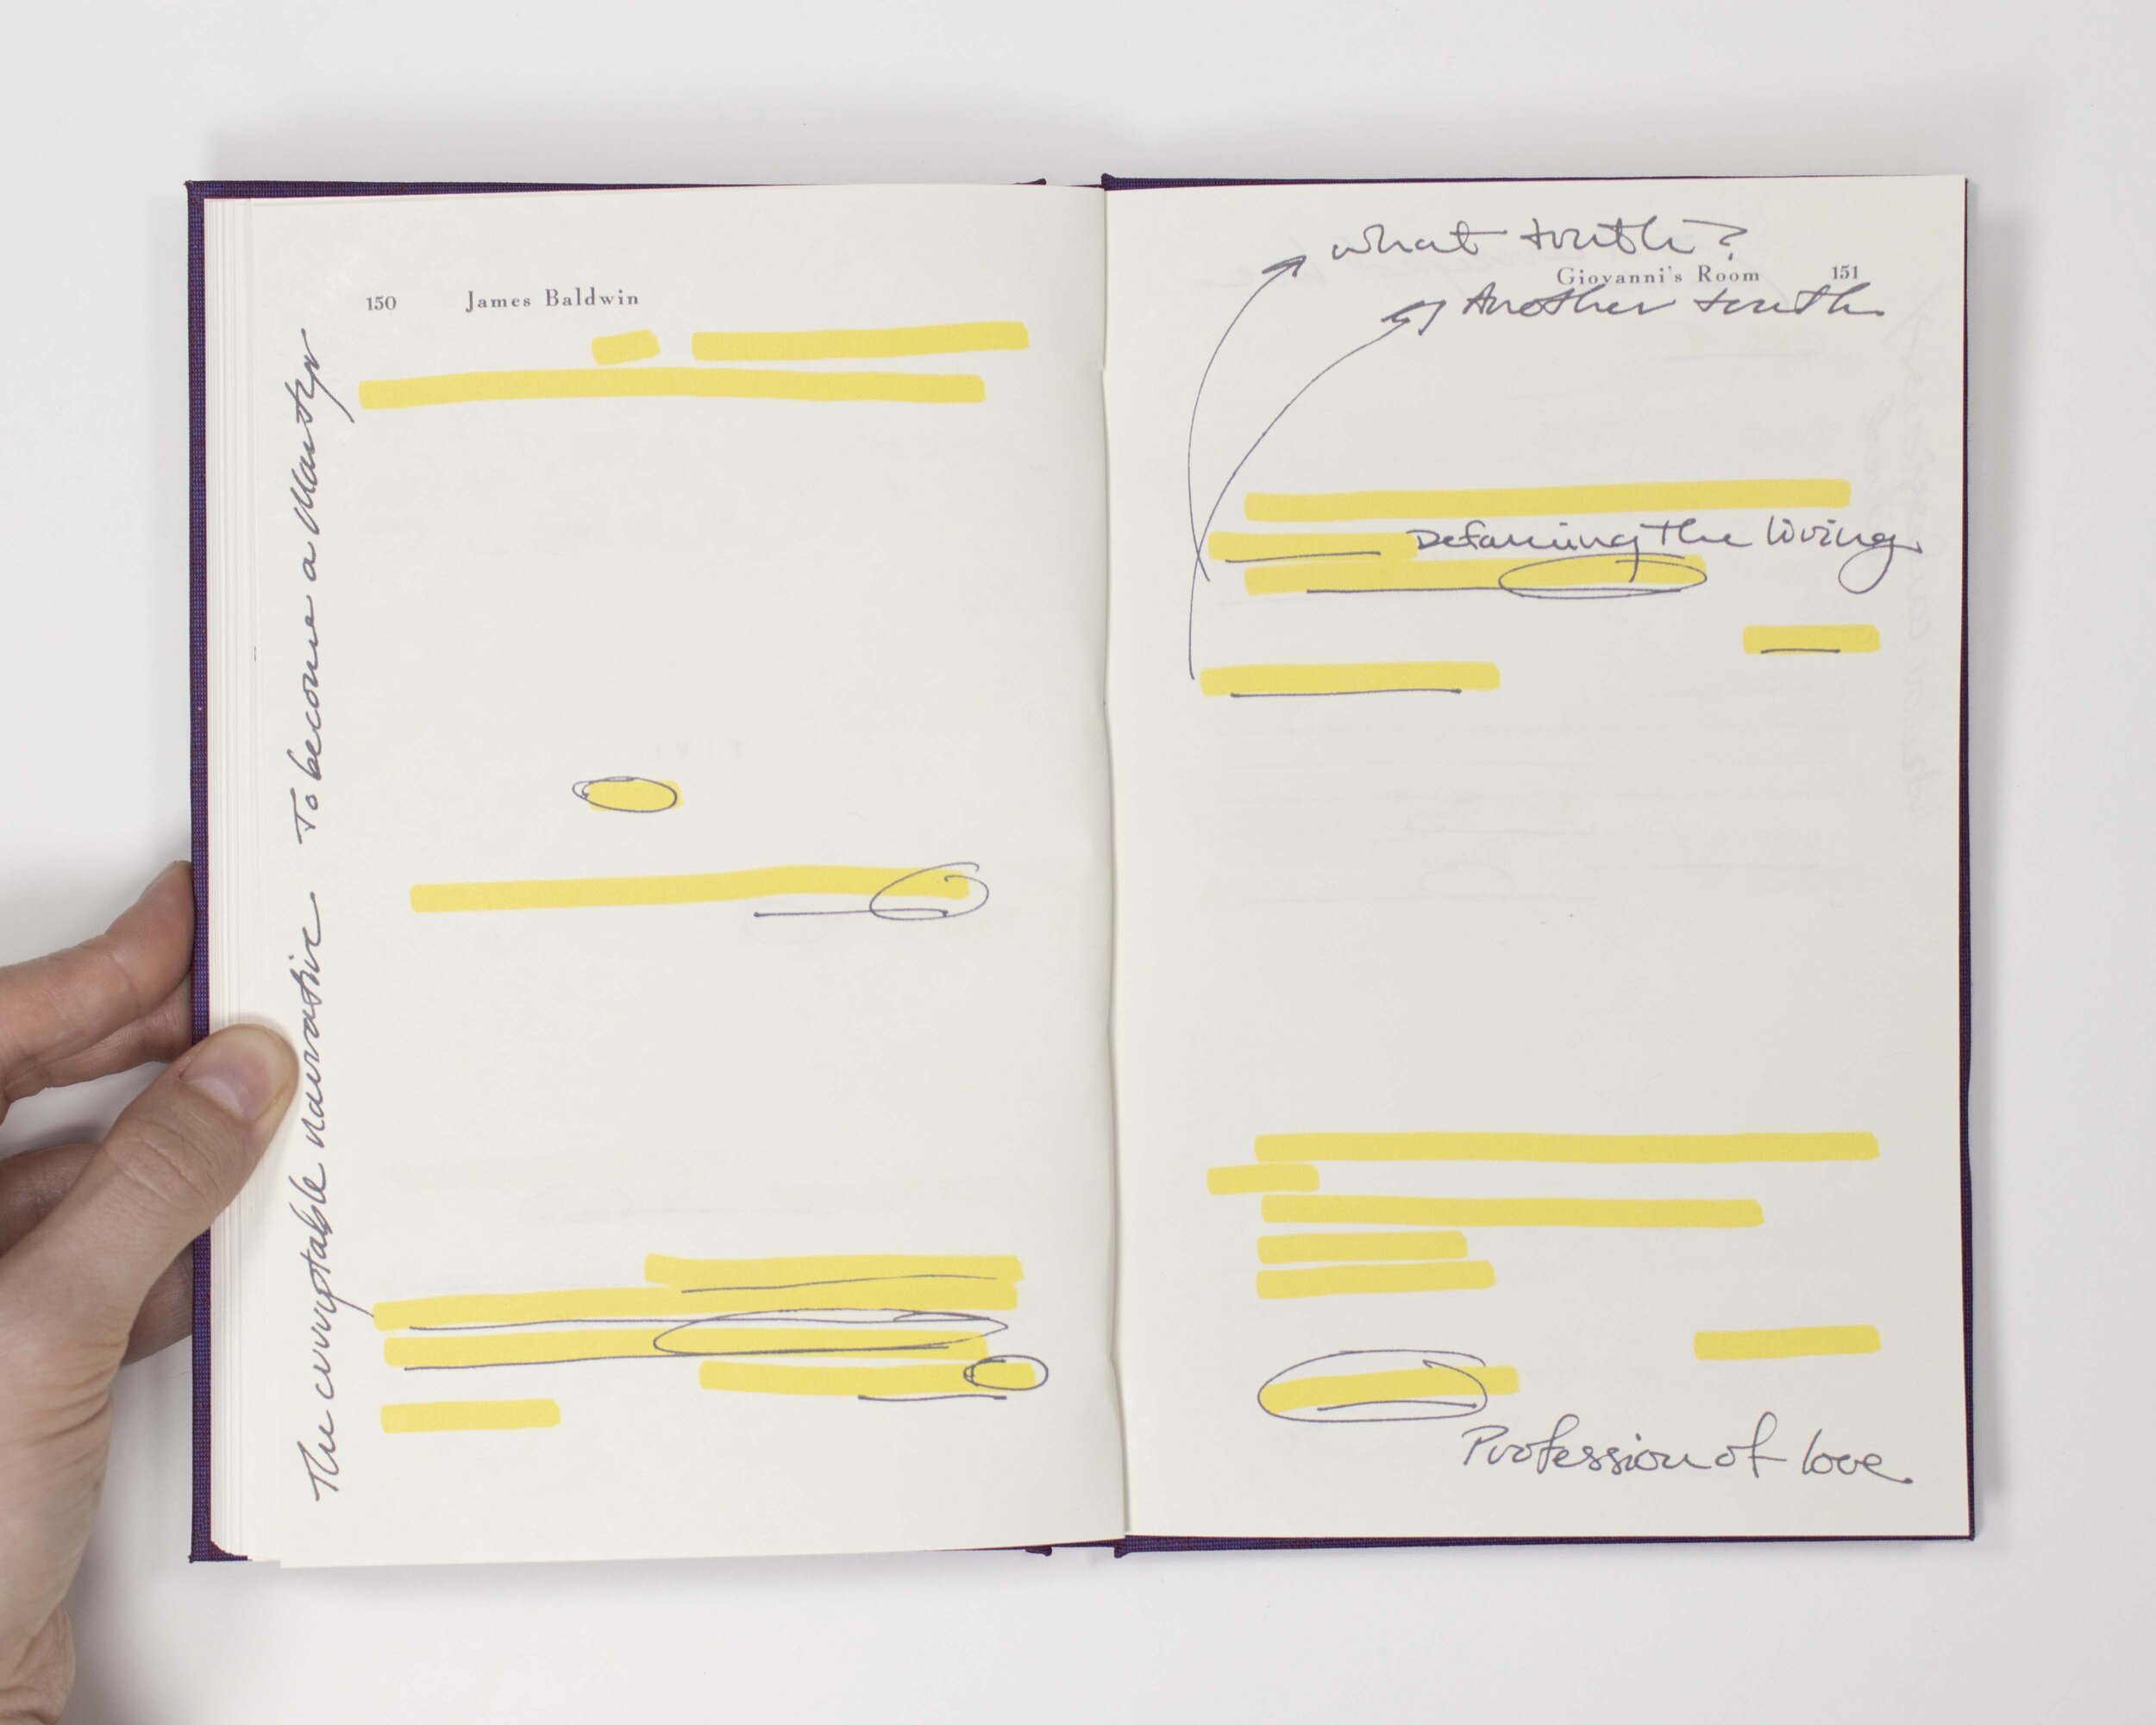 150 James Baldwin
The corruptable narrative To become a Martyr
what truth?
Giovanni's Room 151
Another truth
Defaming The living
Profession of love